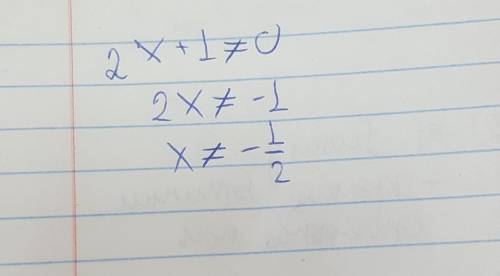 2x+1≠0
2x≠-1
x≠-1/2